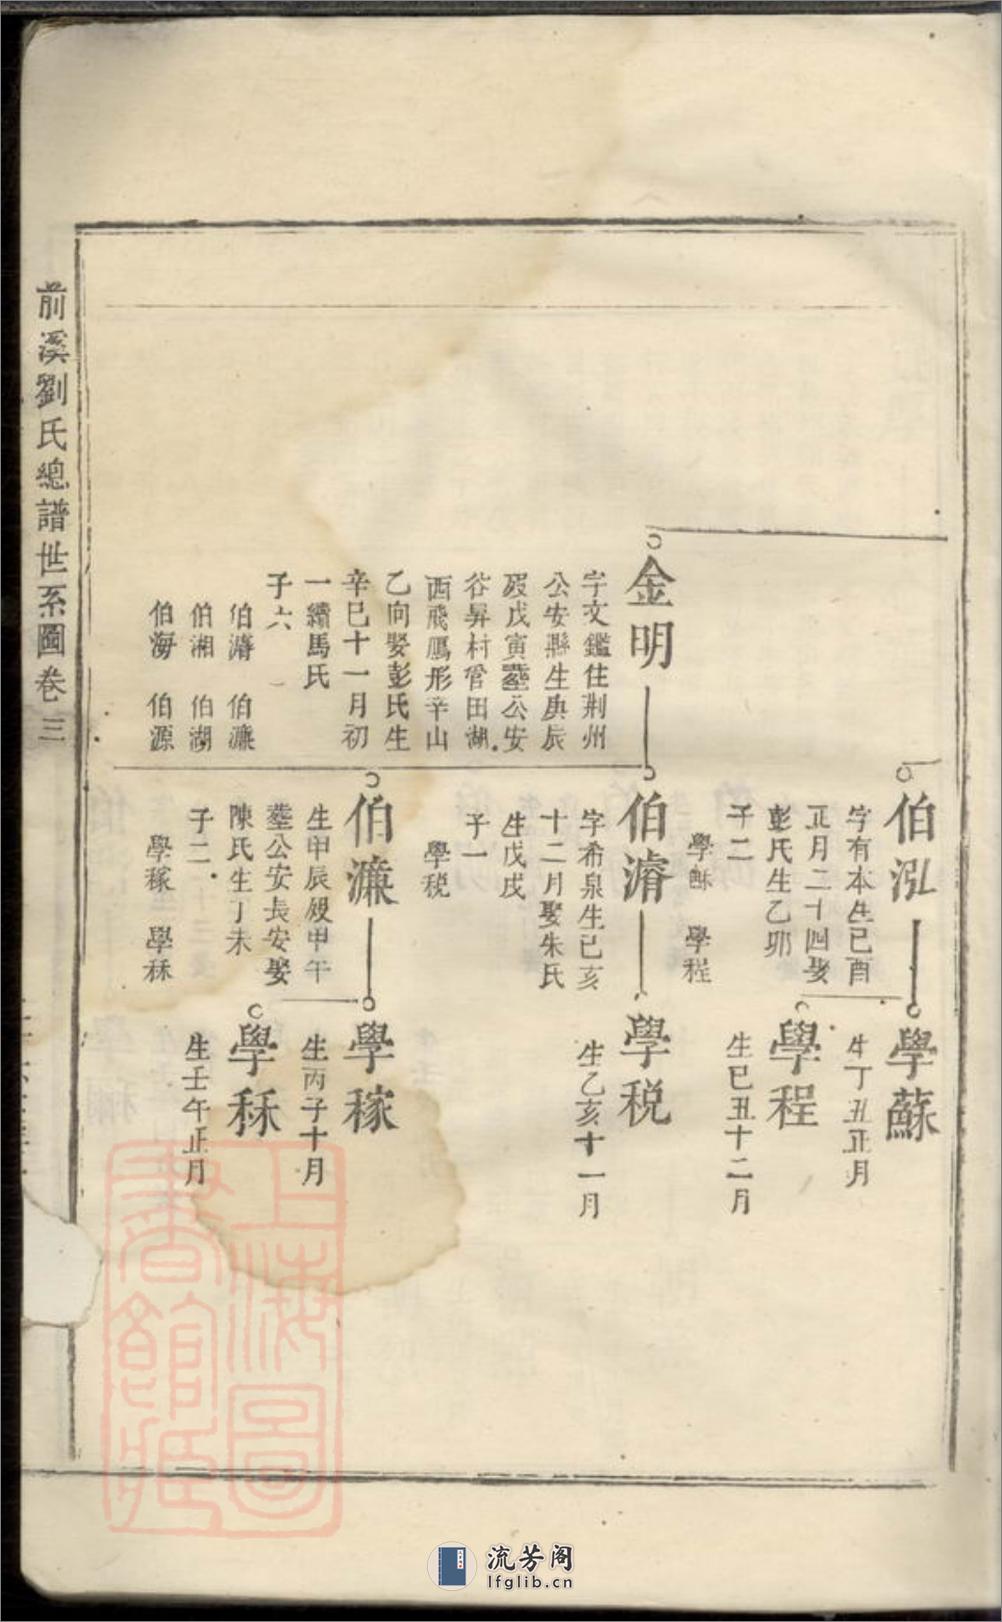 前溪劉氏總譜世系圖卷三
金明
字文鑑住荆州
公安縣生庚辰
歿戊寅塟公安
谷昇村管田湖
西飛鳳形辛山
乙向娶彭氏生
辛巳十一月初
一續馬氏
子六
伯濳 伯濂
伯湘 伯湖
伯海 伯源
伯泓
字有本生己酉
正月二十四娶
彭氏生乙卯
子二
學穌 學程
伯濳
字希泉生己亥
十二月娶朱氏
生戊戌
子一
學税
伯濂
生甲辰歿甲午
塟公安長安娶
陳氏生丁未
子二
學稼 學秝
學蘇
生丁丑正月
學程
生己丑十二月
學税
生乙亥十一月
學稼
生丙子十月
學秝
生壬午正月
上海圖
書館藏
流芳阁
lfglib.cn